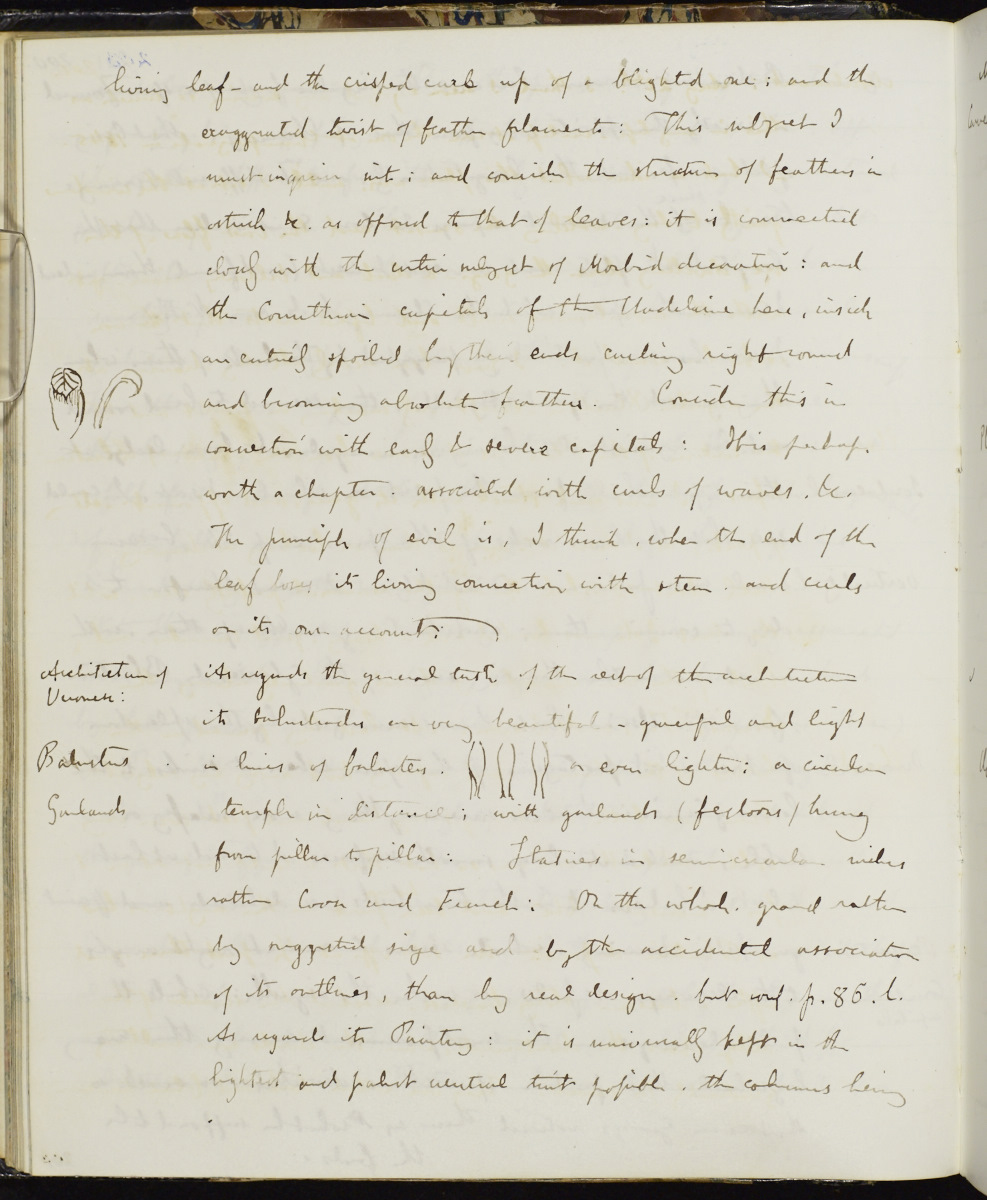 living leaf - and the crisped curl up of a blighted one; and the
exaggerated twist of feather filaments: This subject I
must inquire into; and consider the structure of feathers in
ostrich &c. as opposed to that of leaves: it is connected
closely with the entire subject of Morbid decoration: and
the Corinthian capitals of the Madeleine here, inside
are entirely spoiled by their ends curling right round
and becoming absolute feathers. Consider this in
connection with early & severe capitals: This perhaps
worth a chapter. associated with curls of waves. &c.
The principle of evil is, I think, when the end of the
leaf loses its living connection with stem. and curls
on its own account:
Architecture of
Veronese:
As regards the general taste of the rest of the architecture
its balustrades are very beautiful - graceful and light
Balusters
in lines of balusters. or even lighter: a circular
Garlands
temple in distance; with garlands (festoons) hung
from pillar to pillar: Statues in semicircular niches
rather loose and French: On the whole. grand rather
by suggested size and by the accidental association
of its outlines, than by real design. but conf. p. 86. l.
As regards its Painting: it is universally kept in the
lightest and palest neutral tint possible. the columns being